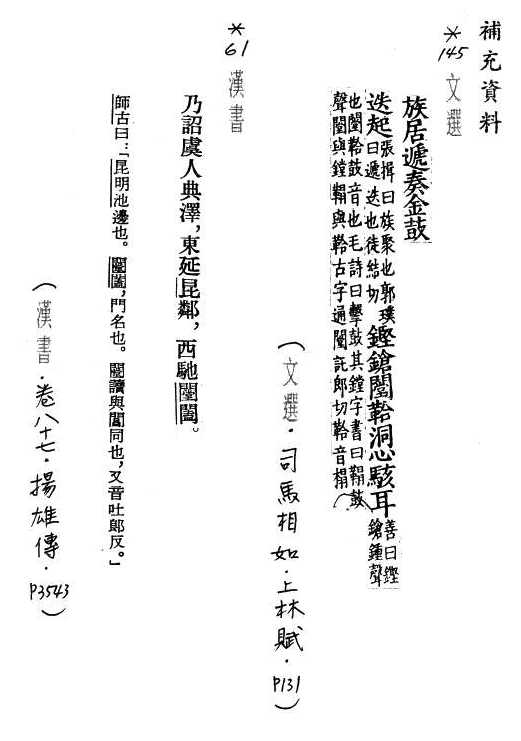 補充資料
*145 文選
族居遞奏金鼓
迭起張揖曰族聚也郭璞
曰遞迭也徒結切鏗鎗闛鞈洞心駭耳善曰鏗
鎗鍾聲
也闛鞈鼓音也毛詩曰擊鼓其鏜字書曰鼓
聲闛與鏜與鞈古字通闛託郎切鞈音榻
(文選.司馬相如.上林賦.P131)
*61 漢書
乃詔虞人典澤,東延昆鄰,西馳闛闔。
師古曰:「昆明池邊也。闛闔,門名也。闛讀與閶同也,又音吐郎反。」
(漢書.卷八十七.揚雄傳.P3543)